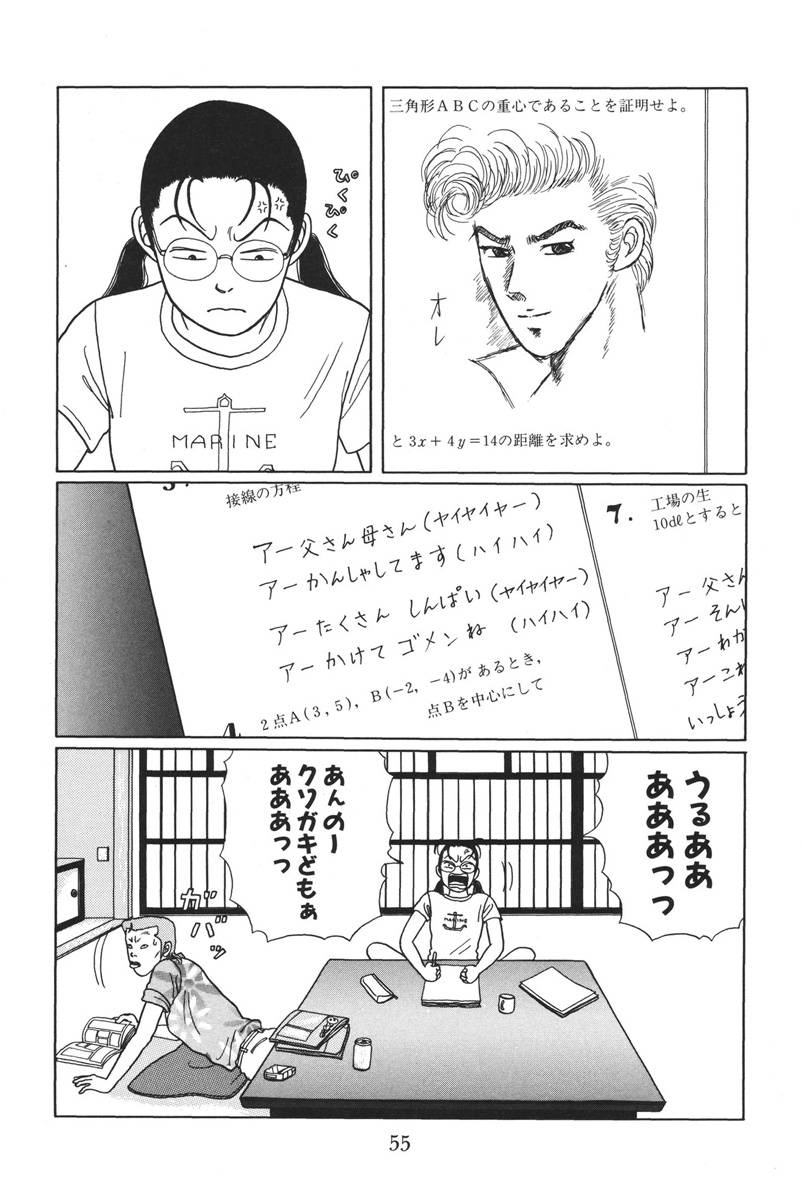 三角形ABCの重心であることを証明せよ。
オレ
と3x+4y=14の距離を求めよ。
ぴくぴく
MARINE
接線の方程
アー父さん母さん(ヤイヤイヤー)
アーかんしゃしてます(ハイハイ)
アーたくさん しんぱい(ヤイヤイヤー)
アーかけて ゴメンね (ハイハイ)
2点A(3, 5), B(−2, −4)があるとき,
点Bを中心にして
7.
工場の生
10dℓとすると
アー 父さん
アー そんし
アー わか
アー これ
いっしょう
うるああ
あああっっ
あんのー
クソガキどもぉ
あああっっ
MARINE
ガバッ
55